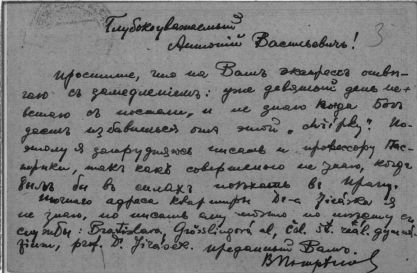 Глубокоуважаемый
Антоній Васильевичъ!
3
Простите, что на Вашъ экспрессъ отвѣ-
чаю съ замедленіемъ: уже девятый день не
встаю съ постели, и не знаю когда Богъ
дастъ избавиться отъ этой „chřipky". По-
этому я затрудняюсь писать и профессору Пас-
трнеку, такъ какъ совершенно не знаю, когда
былъ бы въ силахъ поѣхать въ Прагу.
адреса квартиры D-a Jiráska я
не знаю, но писать ему можно по
службы: Bratislava, Grösslingová ul, čsl. st. reál. gymna-
zium, prof. D. Jirásek. преданный Вамъ.